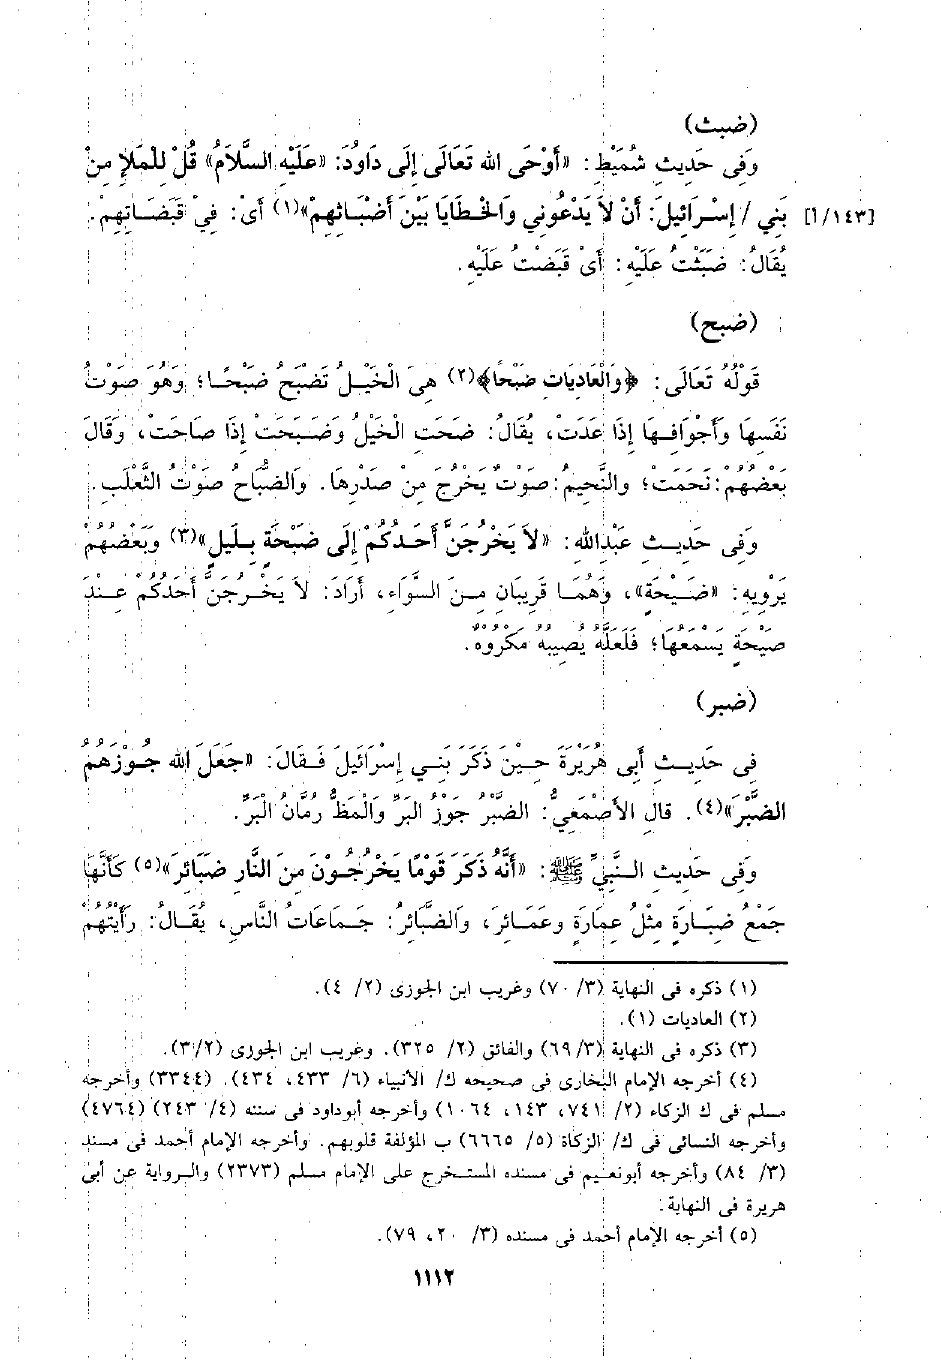 (ضبث)
وَفِى حَدِيثِ شُمَيْطٍ: «أَوْحَى الله تَعَالَى إِلَى دَاوُدَ: «عَلَيْهِ السَّلاَمُ» قُلْ لِلْمَلإِ مِنْ
[١٤٣/أ] بَنِي / إِسْرَائِيلَ: أَنْ لاَ يَدْعُونِي وَالْخَطَايَا بَيْنَ أَضْبَاثِهِمْ»(١) أَىْ: فِيْ قَبَضَاتِهِمْ.
يُقَالُ: ضَبَثْتُ عَلَيْهِ: أَىْ قَبَضْتُ عَلَيْهِ.
(ضبح)
قَوْلُهُ تَعَالَى: ﴿وَالْعَادِيَاتِ ضَبْحًا﴾(٢) هِىَ الْخَيْلُ تَضْبَحُ ضَبْحًا؛ وَهُوَ صَوْتُ
نَفَسِهَا وَأَجْوَافِهَا إِذَا عَدَتْ، يُقَالُ: ضَبَحَتِ الْخَيْلُ وَضَبَحَتْ إِذَا صَاحَتْ، وَقَالَ
بَعْضُهُمْ: نَحَمَتْ؛ والنَّحِيمُ: صَوْتٌ يَخْرُجُ مِنْ صَدْرِهَا. وَالضُّبَاحُ صَوْتُ الثَّعْلَبِ.
وَفِى حَدِيثِ عَبْدِالله: «لاَ يَخْرُجَنَّ أَحَدُكُمْ إِلَى ضَبْحَةٍ بِلَيلٍ»(٣) وَبَعْضُهُمْ
يَرْوِيهِ: «صَيْحَةٍ»، وَهُمَا قَرِيبَانِ مِنَ السَّوَاءِ، أَرَادَ: لاَ يَخْرُجَنَّ أَحَدُكُمْ عِنْدَ
صَيْحَةٍ يَسْمَعُهَا؛ فَلَعَلَّهُ يُصِيبُهُ مَكْرُوهٌ.
(ضبر)
فِى حَدِيثِ أَبِى هُرَيْرَةَ حِيْنَ ذَكَرَ بَنِي إِسْرَائيلَ فَقَالَ: «جَعَلَ الله جُوْزَهُمُ
الضَّبْرَ»(٤). قال الأَصْمَعِيُّ: الضَّبْرُ جَوْزُ البَرِّ وَالْمَظُّ رُمَّانُ الْبَرِّ.
وَفِى حَدِيثِ النَّبِيِّ ﷺ: «أَنَّهُ ذَكَرَ قَوْمًا يَخْرُجُوْنَ مِنَ النَّارِ ضَبَائِرَ»(٥) كَأَنَّهَا
جَمْعُ ضِبَارَةٍ مِثْلُ عِمَارَةٍ وعَمَائرَ، وَالضَّبَائِرُ: جَمَاعَاتُ النَّاسِ، يُقَالُ: رَأَيْتُهُمْ
(١) ذكره فى النهاية (٣/ ٧٠) وغريب ابن الجوزى (٢/ ٤).
(٢) العاديات (١).
(٣) ذكره فى النهاية (٣/ ٦٩) والفائق (٢/ ٣٢٥). وغريب ابن الجوزى (٣/٢).
(٤) أخرجه الإمام البخارى فى صحيحه ك/ الأنبياء (٦/ ٤٣٣، ٤٣٤). (٣٣٤٤) وأخرجه
مسلم فى ك الزكاء (٢/ ٧٤١، ١٤٣، ١٠٦٤) وأخرجه أبوداود فى سننه (٤/ ٢٤٣) (٤٧٦٤)
وأخرجه النسائى فى ك/ الزكاة (٥/ ٦٦٦٥) ب المؤلفة قلوبهم. وأخرجه الإمام أحمد فى مسند
(٣/ ٨٤) وأخرجه أبونعيم فى مسنده المستخرج على الإمام مسلم (٢٣٧٣) والرواية عن أبى
هريرة فى النهاية.
(٥) أخرجه الإمام أحمد فى مسنده (٣/ ٢٠، ٧٩).
١١١٢